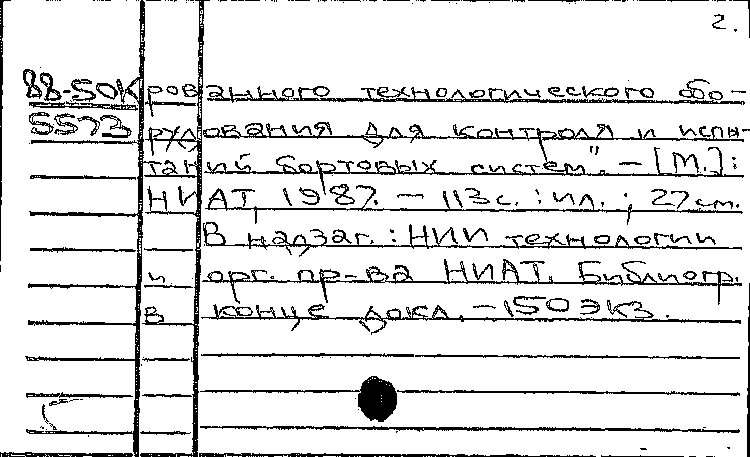 2.
88-50К рованного технологического обо-
5573 рудования для контроля и испы-
таний бортовых систем". – [М.]:
НИАТ, 1987. – 113 с. : ил. ; 27 см.
В надзаг. : НИИ технологии
и орг. пр-ва НИАТ. Библиогр.
в конце докл. – 150 экз.